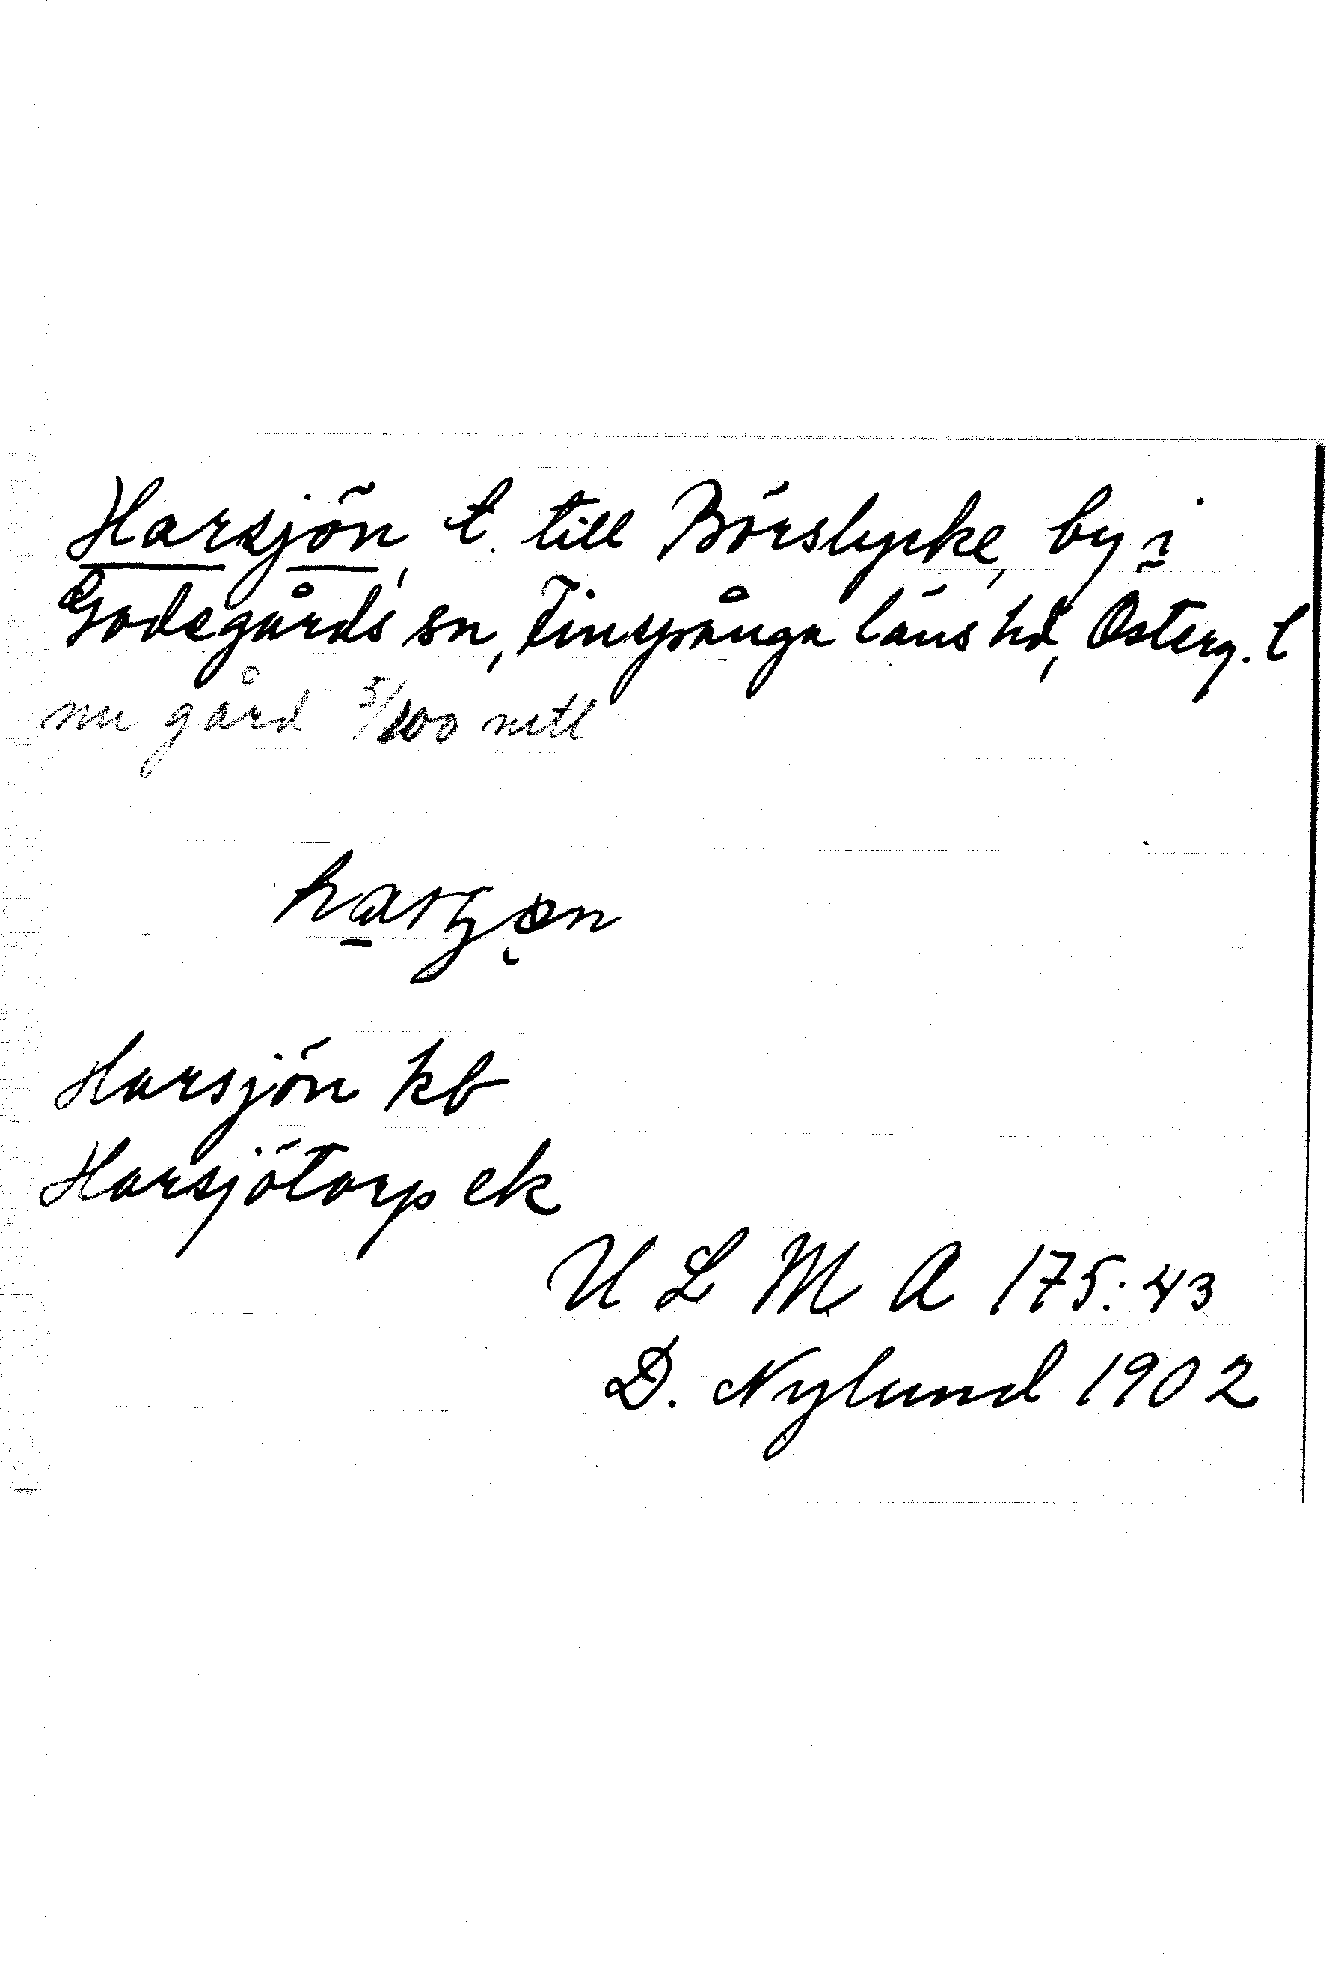 Harsjön, t. till Börslycke, by i
Godegårds sn, Finspånga läns hd, Österg. l
nu gård 5/200 mtl
Harsjön kb
Harsjötorp ek
U L M A 175:43
D. Nylund 1902